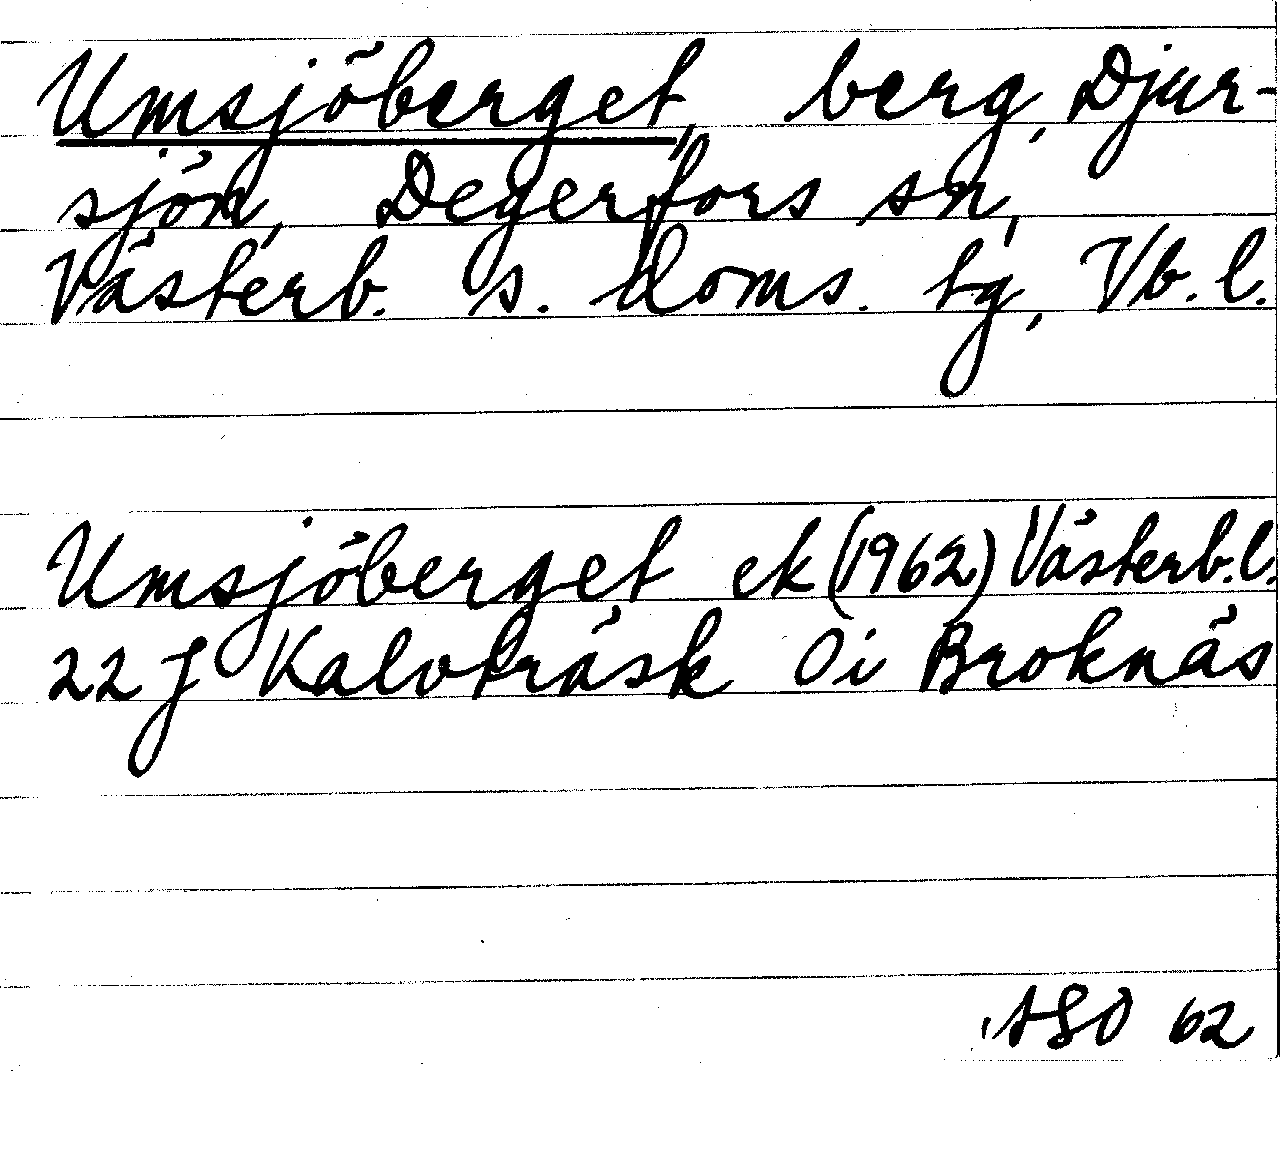 Umsjöberget, berg, Djur-
sjön, Degerfors sn,
Västerb. s. doms. tg, Vb. l.
Umsjöberget ek (1962) Västerb. l.
22 J Kalvträsk Oi Broknäs
ASO 62